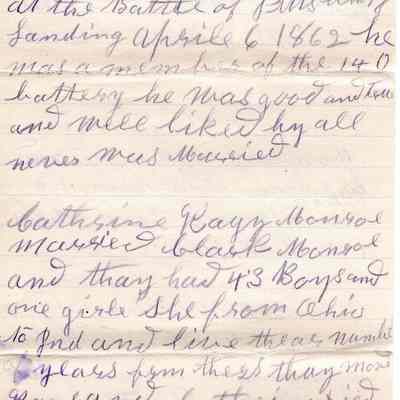 at the Battle of Pittsburg
Landing Aprile 6 1862 he
was a member of the 14 O
battery he was good and true
and well liked by all
never was Married
Cathrine Kagy Monroe
married Clark Monroe
and thay had 4 3 Boys and
one girle She from Ohio
to Ind and live thear number
years from thear thay move